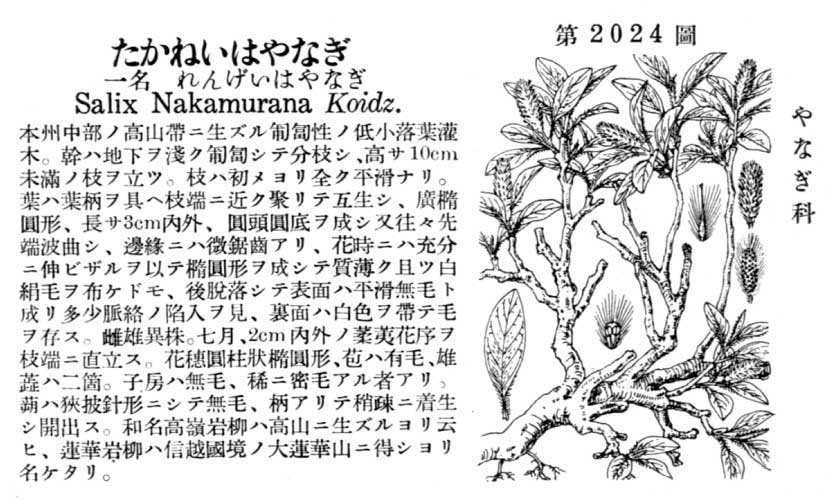 たかねいはやなぎ
一名 れんげいはやなぎ
Salix Nakamurana Koidz.
本州中部ノ高山帶ニ生ズル匍匐性ノ低小落葉灌
木。幹ハ地下ヲ淺ク匍匐シテ分枝シ、高サ10cm
未滿ノ枝ヲ立ツ。枝ハ初メヨリ全ク平滑ナリ。
葉ハ葉柄ヲ具ヘ枝端ニ近ク聚リテ互生シ、廣橢
圓形、長サ3cm內外、圓頭圓底ヲ成シ又往々先
端波曲シ、邊緣ニハ微鋸齒アリ、花時ニハ充分
ニ伸ビザルヲ以テ橢圓形ヲ成シテ質薄ク且ツ白
絹毛ヲ布ケドモ、後脫落シテ表面ハ平滑無毛ト
成リ多少脈絡ノ陷入ヲ見、裏面ハ白色ヲ帶テ毛
ヲ存ス。雌雄異株。七月、2cm內外ノ葇荑花序ヲ
枝端ニ直立ス。花穗圓柱狀橢圓形、苞ハ有毛、雄
蕋ハ二箇。子房ハ無毛、稀ニ密毛アル者アリ。
蒴ハ狹披針形ニシテ無毛、柄アリテ稍疎ニ着生
シ開出ス。和名高嶺岩柳ハ高山ニ生ズルヨリ云
ヒ、蓮華岩柳ハ信越國境ノ大蓮華山ニ得ショリ
名ケタリ。
第2024圖
やなぎ科